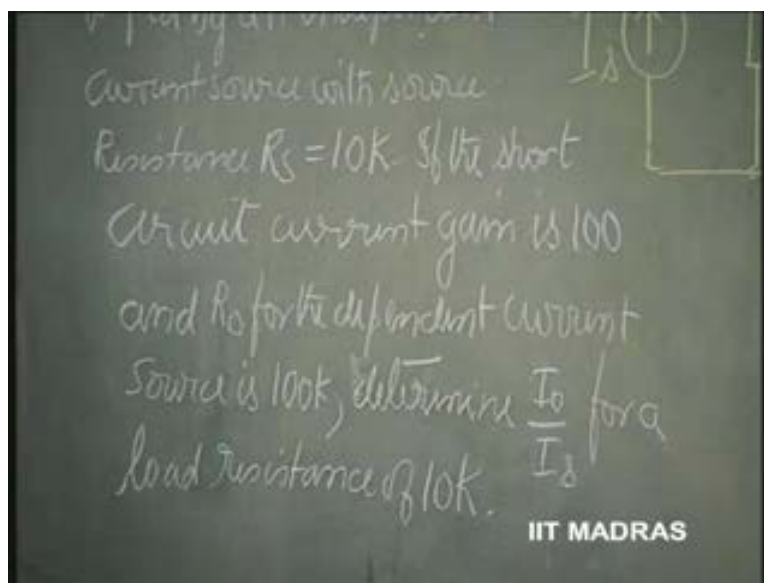 current source with source
Resistance Rs = 10K. If the short
circuit current gain is 100
and Ro for the dependent current
Source is 100K, determine Io/Is for a
load resistance of 10K.
Is
IIT MADRAS